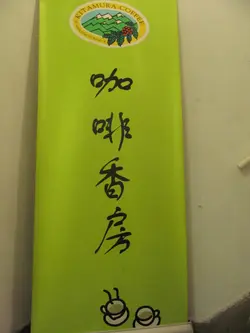 KITAMURA COFFEE
咖啡香房